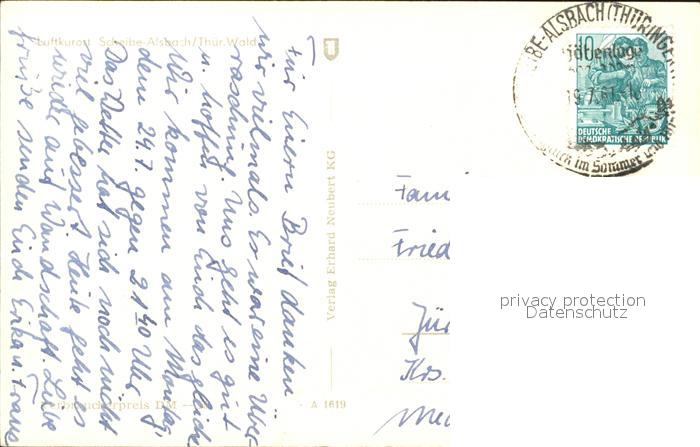 Luftkurort Scheibe-Alsbach/Thür. Wald
Für Euern Brief danken
wir vielmals. Es war eine Über-
raschung. Uns geht es gut
u. hoffen von Euch das gleiche
Wir kommen am Montag,
dem 24.7. gegen 21 40 Uhr
Das Wetter hat sich noch nicht
viel gebessert. Heute geht es
wieder auf Wandschaft. Liebe
Grüße senden Euch Erika u. Frans
Verbraucherpreis DM
Verlag Erhard Neubert KG
A 1619
BE-ALSBACH (THÜRINGE
Höhenlage
19.7.61
im Sommer und Winter
10
DEUTSCHE
DEMOKRATISCHE REPUBLIK
Fam
Fried
Jür
Krs.
privacy protection
Datenschutz